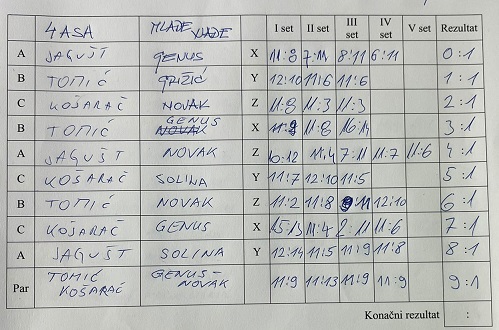 4ASA MLADE VLADE I set II set III set IV set V set Rezultat
A JAGUŠT GENUS X 11:8 7:11 8:11 6:11 0:1
B TOMIĆ GRIŽIĆ Y 12:10 11:6 11:6 1:1
C KOŠARAČ NOVAK Z 11:8 11:3 11:3 2:1
B TOMIĆ GENUS NOVAK X 11:9 11:8 16:14 3:1
A JAGUŠT NOVAK Z 10:12 11:4 7:11 11:7 11:6 4:1
C KOŠARAČ SOLINA Y 11:7 12:10 11:5 5:1
B TOMIĆ NOVAK Z 11:2 11:8 9:11 12:10 6:1
C KOŠARAČ GENUS X 15:13 11:4 2:11 11:6 7:1
A JAGUŠT SOLINA Y 12:14 11:5 11:9 11:8 8:1
Par TOMIĆ KOŠARAČ GENUS - NOVAK 11:9 11:13 11:9 11:9 9:1
Konačni rezultat :